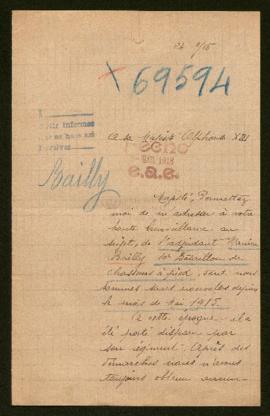 69594
A Sa Majesté Alphonse XIII
Bailly
Majesté, Permettez
moi de m'adresser à votre
haute bienveillance au
sujet, de l'adjudant
Bailly Bataillon de
chasseurs à pied, dont nous
sommes sans nouvelles depuis
le mois de Mai 1915.
A cette époque il a
été porté disparu par
son régiment. Après des
démarches nous n'avons
toujours obtenu aucun